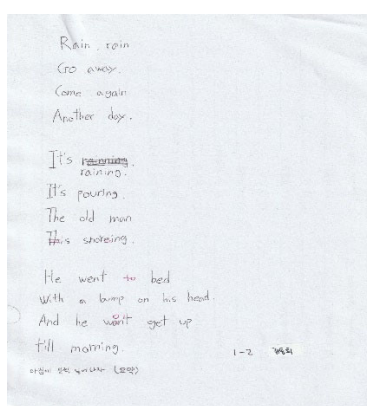 Rain, rain
Go away.
Come again
Another day.
It's raining.
It's pouring.
The old man
is snoreing.
He went to bed
With a bump on his head.
And he won't get up
till morning.
1-2